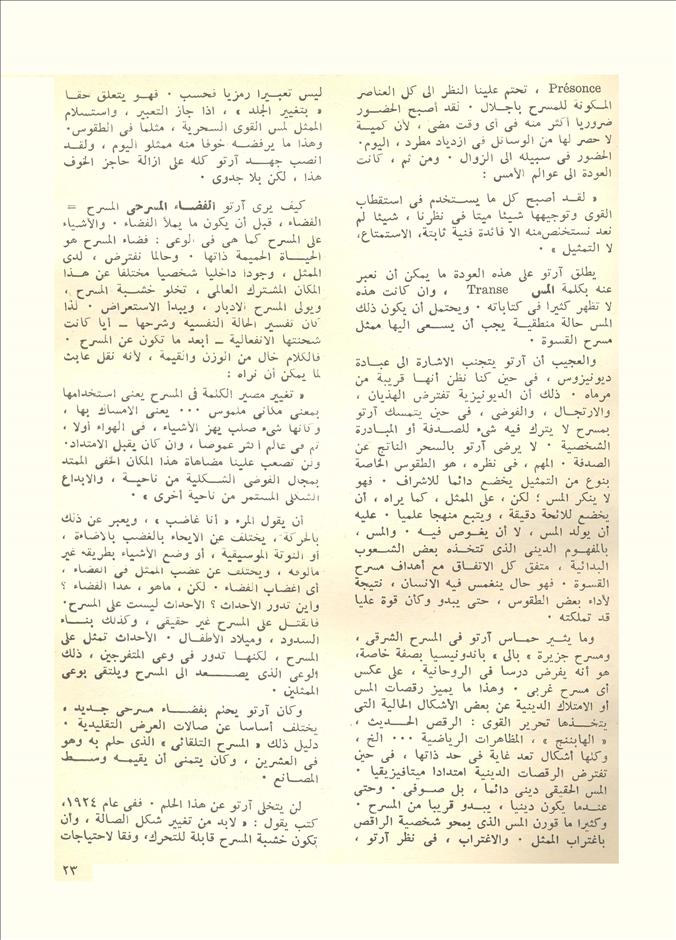 Présonce ، تحتم علينا النظر الى كل العناصر
المكونة للمسرح باجلال ٠ لقد أصبح الحضور
ضروريا أكثر منه فى أى وقت مضى ، لأن كمية
لا حصر لها من الوسائل فى ازدياد مطرد ، اليوم٠
الحضور فى سبيله الى الزوال ٠ ومن ثم ، كانت
العودة الى عوالم الأمس :
« لقد أصبح كل ما يستخدم فى استقطاب
القوى وتوجيهها شيئا ميتا فى نظرنا ، شيئا لم
نعد نستخلص منه الا فائدة فنية ثابتة، الاستمتاع،
لا التمثيل » ٠
يطلق آرتو على هذه العودة ما يمكن أن نعبر
عنه بكلمة المس Transe ، وان كانت هذه
لا تظهر كثيرا فى كتاباته ٠ ويحتمل أن يكون ذلك
المس حالة منطقية يجب أن يسعى اليها ممثل
مسرح القسوة ٠
والعجيب أن آرتو يتجنب الاشارة الى عبادة
ديونيزوس ، فى حين كنا نظن أنها قريبة من
مرماه ٠ ذلك أن الديونيزية تفترض الهذيان ،
والارتجال ، والفوضى ، فى حين يتمسك آرتو
بمسرح لا يترك فيه شىء للصدفة أو المبادرة
الشخصية ٠ لا يرضى آرتو بالسحر الناتج عن
الصدفة ٠ المهم ، فى نظره ، هو الطقوس الخاصة
بنوع من التمثيل يخضع دائما للاشراف ٠ فهو
لا ينكر المس ؛ لكن ، على الممثل ، كما يراه ، أن
يخضع للائحة دقيقة ، ويتبع منهجا علميا ٠ عليه
أن يولد المس ، لا أن يغوص فيه ٠ والمس ،
بالمفهوم الدينى الذى تتخذه بعض الشعوب
البدائية ، متفق كل الاتفاق مع أهداف مسرح
القسوة ٠ فهو حال ينغمس فيه الانسان ، نتيجة
لأداء بعض الطقوس ، حتى يبدو وكأن قوة عليا
قد تملكته ٠
وما يثير حماس آرتو فى المسرح الشرقى ،
ومسرح جزيرة « بالى » باندونيسيا بصفة خاصة،
هو أنه يفرض درسا فى الروحانية ، على عكس
أى مسرح غربى ٠ وهذا ما يميز رقصات المس
أو الامتلاك الدينية عن بعض الأشكال الحالية التى
يتخذها تحرير القوى : الرقص الحديث ،
« الهابننج » ، المظاهرات الرياضية ٠٠٠ الخ ،
وكلها أشكال تعد غاية فى حد ذاتها ، فى حين
تفترض الرقصات الدينية امتدادا ميتافيزيقيا ٠
المس الحقيقى دينى دائما ، بل صوفى ٠ وحتى
عندما يكون دينيا ، يبدو قريبا من المسرح ٠
وكثيرا ما قورن المس الذى يمحو شخصية الراقص
باغتراب الممثل ٠ والاغتراب ، فى نظر آرتو ،
ليس تعبيرا رمزيا فحسب ٠ فهو يتعلق حقا
« بتغيير الجلد » ، اذا جاز التعبير ، واستسلام
الممثل لمس القوى السحرية ، مثلما فى الطقوس٠
وهذا ما يرفضه خوفا منه ممثلو اليوم ، ولقد
انصب جهد آرتو كله على ازالة حاجز الخوف
هذا ، لكن بلا جدوى ٠
كيف يرى آرتو الفضاء المسرحى المسرح =
الفضاء ، قبل أن يكون ما يملأ الفضاء ٠ والأشياء
على المسرح كما هى فى الوعى : فضاء المسرح هو
الحياة الحميمة ذاتها ٠ وحالما نفترض ، لدى
الممثل ، وجودا داخليا شخصيا مختلفا عن هذا
المكان المشترك العالمى ، تخلو خشبة المسرح ،
ويولى المسرح الادبار ، ويبدأ الاستعراض ٠ لذا
كان تفسير الحالة النفسيه وشرحها – أيا كانت
شحنتها الانفعالية – أبعد ما تكون عن المسرح ٠
فالكلام خال من الوزن والقيمة ، لأنه نقل عابث
لما يمكن أن نراه :
« تغيير مصير الكلمة فى المسرح يعنى استخدامها
بمعنى مكانى ملموس ٠٠٠ يعنى الامساك بها ،
وكأنها شىء صلب يهز الأشياء ، فى الهواء أولا ،
ثم فى عالم أكثر غموضا ، وان كان يقبل الامتداد٠
ولن تصعب علينا مضاهاة هذا المكان الخفى الممتد
بمجال الفوضى الشكلية من ناحية ، والابداع
الشكلى المستمر من ناحية أخرى » ٠
أن يقول المرء « أنا غاضب » ، ويعبر عن ذلك
بالحركة ، يختلف عن الايحاء بالغضب بالاضاءة ،
أو النوتة الموسيقية ، أو وضع الأشياء بطريقه غير
مألوفة ، ويختلف عن غضب الممثل فى الفضاء ،
أى اغضاب الفضاء ٠ لكن ، ماهو ، هذا الفضاء ؟
وأين تدور الأحداث ؟ الأحداث ليست على المسرح٠
فالقتل على المسرح غير حقيقى ، وكذلك بناء
السدود ، وميلاد الأطفال ٠ الأحداث تمثل على
المسرح ، لكنها تدور فى وعى المتفرجين ، ذلك
الوعى الذى يصعد الى المسرح ويلتقى بوعى
الممثلين ٠
وكان آرتو يحلم بفضاء مسرحى جديد ،
يختلف أساسا عن صالات العرض التقليدية ٠
دليل ذلك « المسرح التلقائى » الذى حلم به وهو
فى العشرين ، وكان يتمنى أن يقيمه وسط
المصانع ٠
لن يتخلى آرتو عن هذا الحلم ٠ ففى عام ١٩٢٤،
كتب يقول : « لابد من تغيير شكل الصالة ، وأن
تكون خشبة المسرح قابلة للتحرك، وفقا لاحتياجات
٢٣